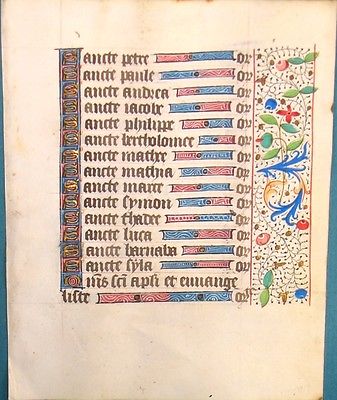 Sancte petre or
Sancte paule or
Sancte andrea or
Sancte iacobe or
Sancte philippe or
Sancte bertholomee or
Sancte mathee or
Sancte mathia or
Sancte marce or
Sancte symon or
Sancte thadee or
Sancte luca or
Sancte barnaba or
Sancte syla or
Oms sci apli et euuange
liste or